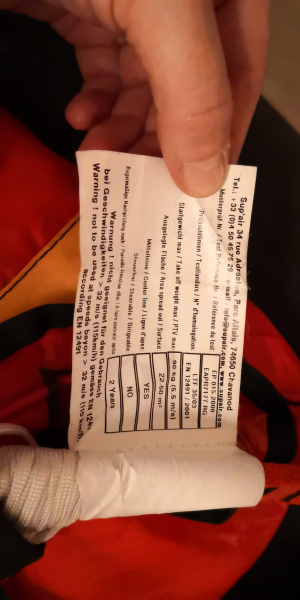 Sup'air 34 rue Adrastée, Parc Altaïs, 74650 Chavanod
Tel.: +33 (0)4 50 45 75 29 e-mail: info@supair.com, www.supair.com
Musterprüf. Nr. / Test Reference Nr. / Référence du test EP 015.2008
EAPR/7177 NG
Prüfrichtlinien / Testlaadard / N° d'homologation LTF 35/03
EN 12491 / 2001
Startgewicht max / Take off weight max / PTV max 90 kg (5.5 m/s)
Ausgelegte Fläche / Area spread out / Surface 22.50 m²
Mittelleine / Center line / Ligne d'apex YES
Steuerbar / Steerable / Dirigeable NO
Regelmäßige Nachprüfung nach / 2 Years
Warnung ! nicht geeignet für den Gebrauch
bei Geschwindigkeiten > 32 m/s (115km/h) gemäss EN
Warning ! not to be used at speeds beyon > 32 m/s (115 km/h
according EN 12491